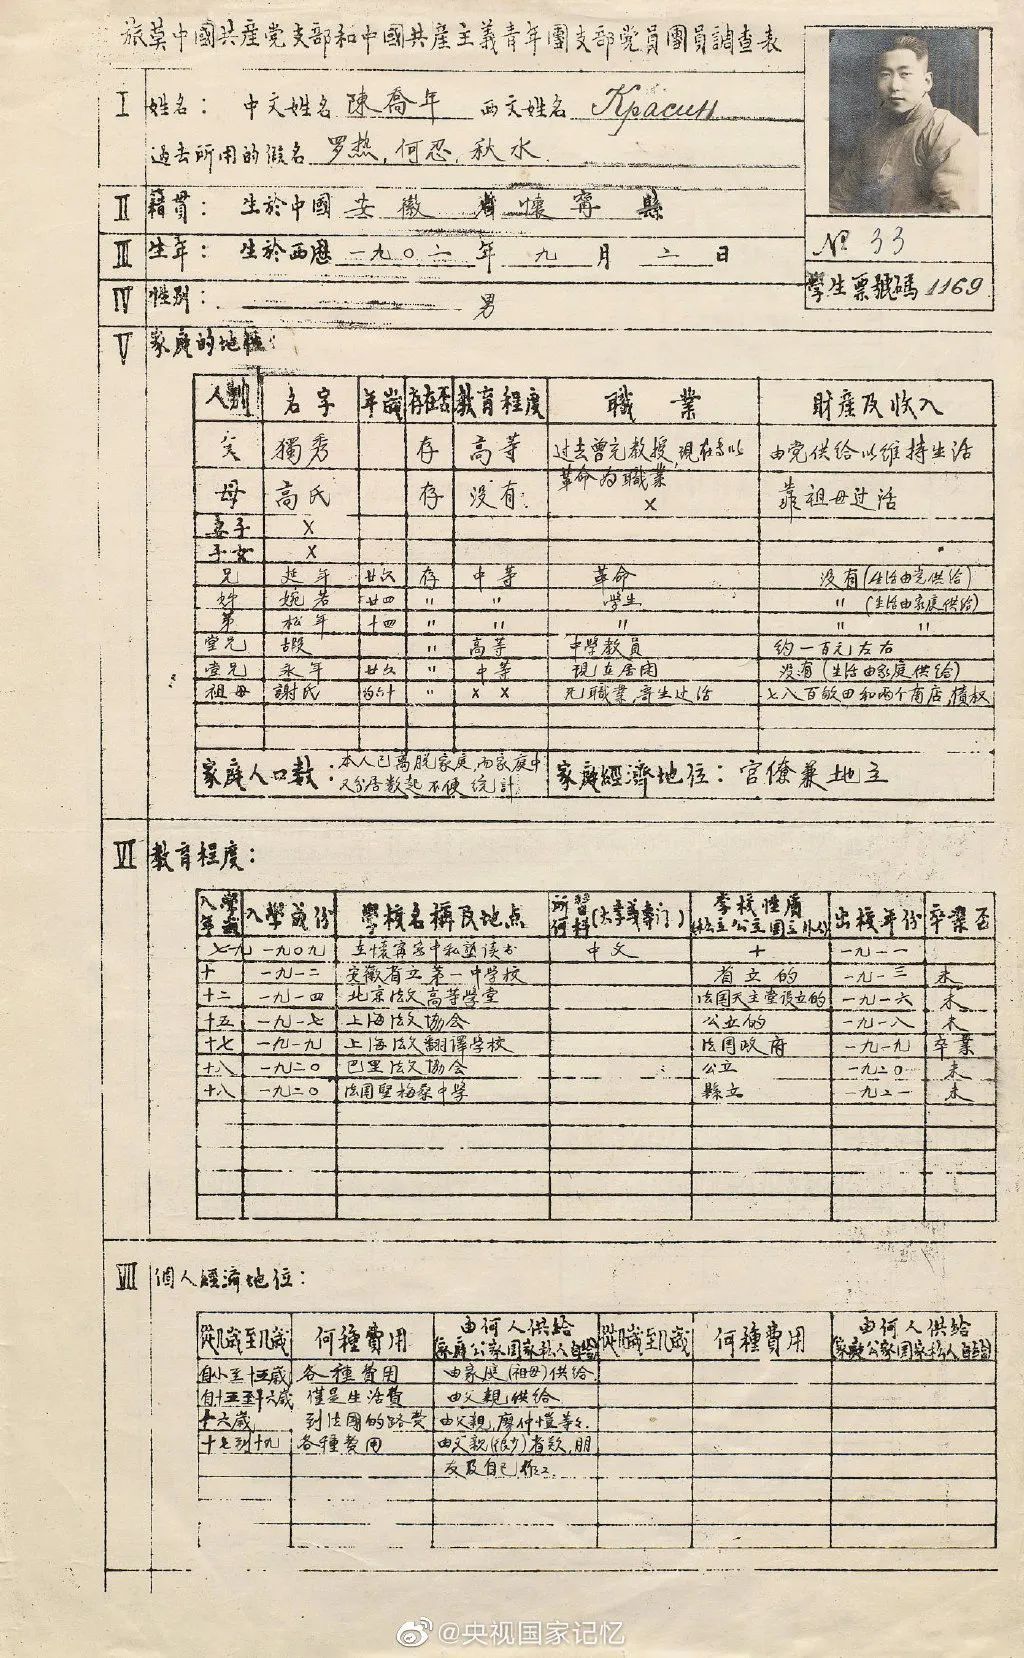 旅莫中國共產党支部和中國共產主義青年團支部党員團員調查表
I 姓名： 中文姓名 陳喬年 西文姓名 Красин
过去所用的假名 罗热，何忍，秋水
II 籍貫： 生於中國 安徽 省 懷甯 縣
III 生年： 生於西歷 一九〇二 年 九 月 二 日
IV 性别： 男
№ 33
學生票號碼 1169
V 家庭的地位：
人别 名字 年歲 存在否 教育程度 職業 財產及收入
父 獨秀 存 高等 过去曾充教授，現在专以革命为職業 由党供给以维持生活
母 高氏 存 没有 × 靠祖母过活
妻子 ×
子女 ×
兄 延年 廿六 存 中等 革命 没有(生活由党供给)
姊 婉若 廿四 〃 〃 学生 〃 (生活由家庭供给)
弟 松年 十四 〃 〃 〃 〃 〃
堂兄 遐 〃 高等 中學教員 约一百元左右
堂兄 永年 廿六 〃 中等 現在居闲 没有(生活由家庭供给)
祖母 謝氏 〃 × × 无職業，寄生过活 七八百畝田和兩个商店，債权
家庭人口數： 本人已离脱家庭，而家庭中又分居数起不便统計 家庭經濟地位： 官僚兼地主
VI 教育程度：
入學年歲 入學歲份 學校名稱及地点 所習何科(大學或專门) 學校性質(私立公立國立外人) 出校年份 卒業否
七–九 一九〇九 在懷甯家中私塾读书 中文 + 一九一一
十 一九一二 安徽省立第一中学校 省立的 一九一三 未
十二 一九一四 北京法文高等學堂 法国天主堂设立的 一九一六 未
十五 一九一七 上海法文協会 公立的 一九一八 未
十七 一九一九 上海法文翻譯学校 法国政府 一九一九 卒業
十八 一九二〇 巴里法文協会 公立 一九二〇 未
十八 一九二〇 法国聖梅桑中学 縣立 一九二一 未
VII 個人經濟地位：
從几歲至几歲 何種費用 由何人供给(家庭公家国家私人自给) 從几歲至几歲 何種費用 由何人供给(家庭公家国家私人自给)
自小至十五歲 各種費用 由家庭(祖母)供给
自十五至十六歲 僅是生活費 由父親供给
十六歲 到法国的路费 由父親，廖仲愷等
十七到十九 各種費用 由父親(很少)者数，朋友及自己作工
@央视国家记忆